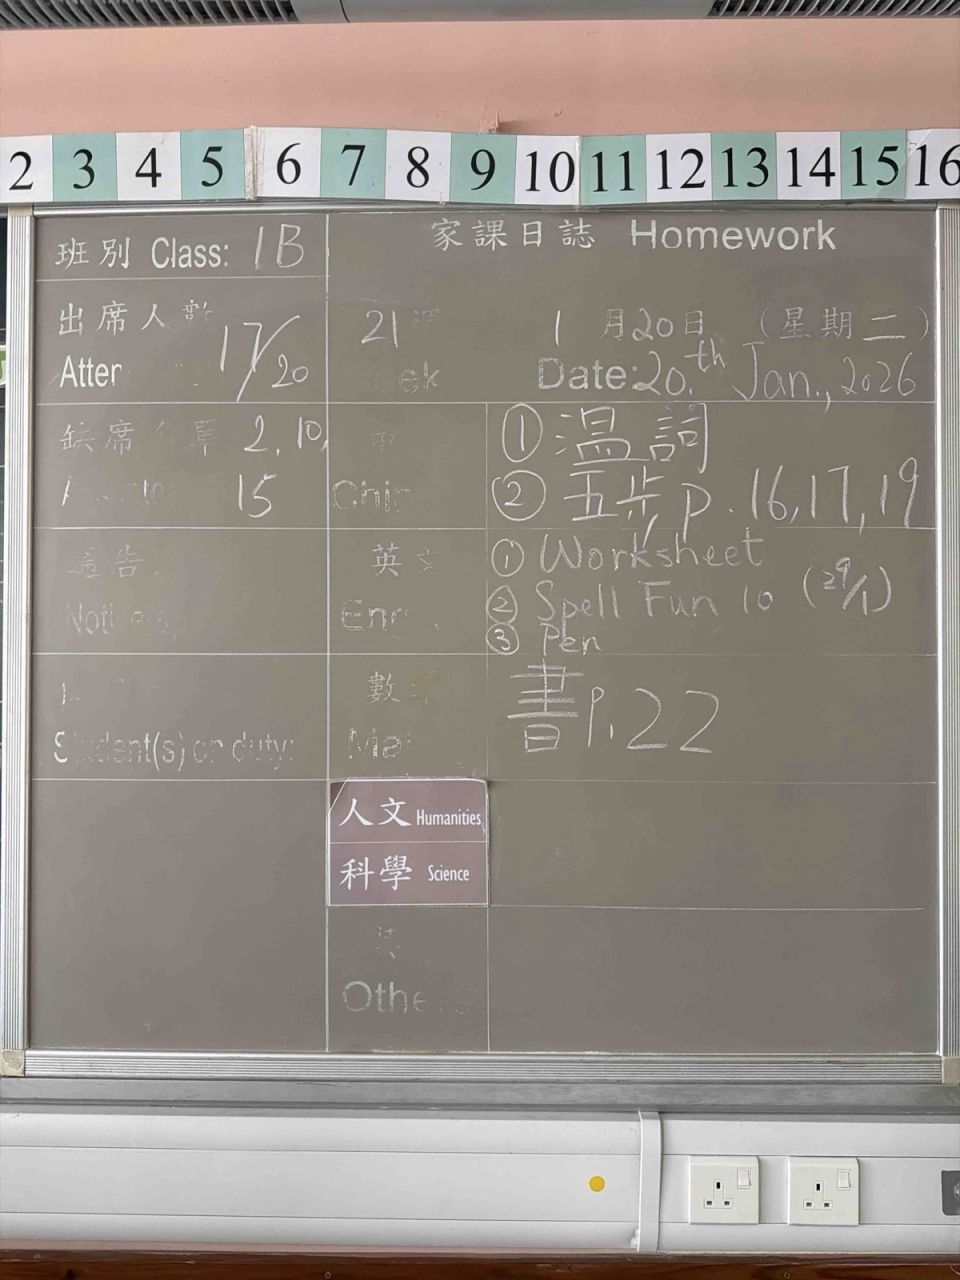 2 3 4 5 6 7 8 9 10 11 12 13 14 15 16
家課日誌 Homework
班別 Class: 1B
出席人數 17/20
Atten
21 週 1 月20日 (星期二)
ek Date: 20.th Jan., 2026
缺席名單 2, 10,
15
Chin
① 溫詞
② 五步 p. 16, 17, 19
通告
Notices
英文
Eng
① Worksheet
② Spell Fun 10 (29/1)
③ Pen
Student(s) on duty:
數學
Mat
書 P. 22
人文 Humanities
科學 Science
其
Othe